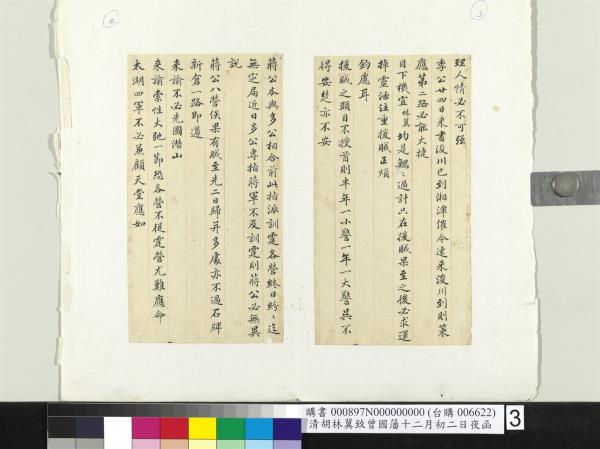 理人情必不可强
李公廿四日來書浚川已到湘潭催令速來浚川到則策
應第二路必能大捷
目下機宜林翼均是鰓鰓過計只在援賊果至之後必求運
掉靈活注重援賊正煩
鈞慮耳
援賊之頭目不授首則半年一小警一年一大警吳不
得安楚亦不安
蔣公本與多公相合前此指派訓霆各營終日紛紛迄
無定局近日多公專指蔣軍不及訓霆則蔣公必無異
說
蔣公八營俟果有賊至先二日歸并多處亦不過石牌
新倉一路即遵
來諭不必先圖潛山
來諭索性大弛一節恐各營不從霆營尤難應命
太湖四軍不必兼顧天堂應如
3
購書 000897N000000000 (台購 006622)
清胡林翼致曾國藩十二月初二日夜函
3